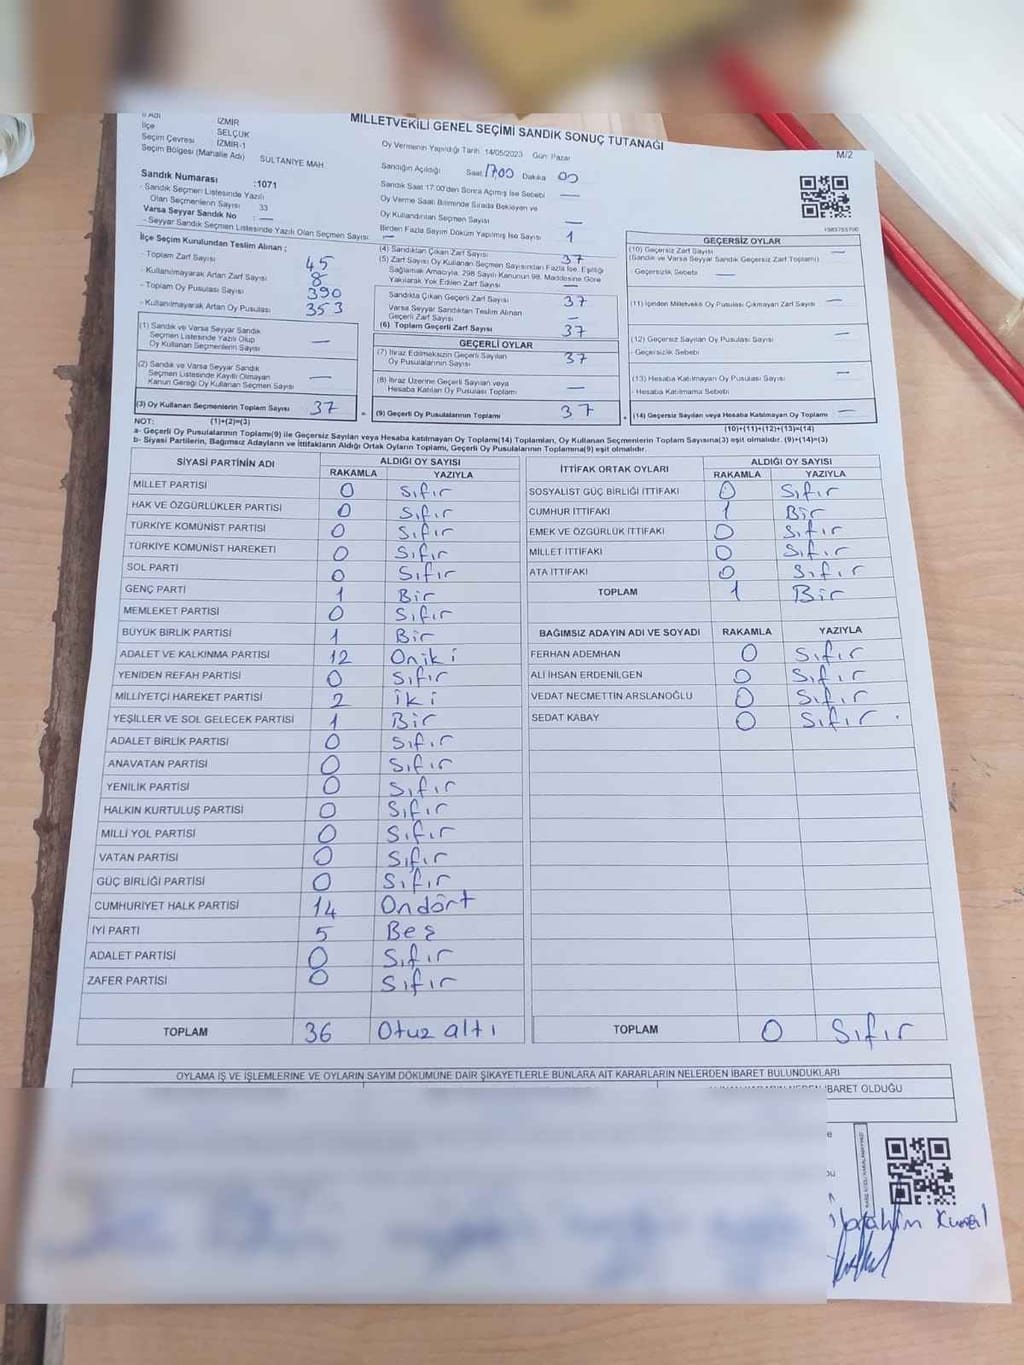 MİLLETVEKİLİ GENEL SEÇİMİ SANDIK SONUÇ TUTANAĞI
M/2
İl Adı : İZMİR
İlçe : SELÇUK
Seçim Çevresi : İZMİR-1
Seçim Bölgesi (Mahalle Adı) SULTANİYE MAH.
Sandık Numarası :1071
- Sandık Seçmen Listesinde Yazılı
Olan Seçmenlerin Sayısı 33
Varsa Seyyar Sandık No : —
- Seyyar Sandık Seçmen Listesinde Yazılı Olan Seçmen Sayısı —
Oy Vermenin Yapıldığı Tarih 14/05/2023 Gün: Pazar
Sandığın Açıldığı Saat 1700 Dakika 00
Sandık Saat 17.00'den Sonra Açılmış İse Sebebi —
Oy Verme Saati Bitiminde Sırada Bekleyen ve
Oy Kullandırılan Seçmen Sayısı —
Birden Fazla Sayım Döküm Yapılmış İse Sayısı 1
İlçe Seçim Kurulundan Teslim Alınan ;
- Toplam Zarf Sayısı 45
- Kullanılmayarak Artan Zarf Sayısı 8
- Toplam Oy Pusulası Sayısı 390
- Kullanılmayarak Artan Oy Pusulası 353
(1) Sandık ve Varsa Seyyar Sandık
Seçmen Listesinde Yazılı Olup
Oy Kullanan Seçmenlerin Sayısı —
(2) Sandık ve Varsa Seyyar Sandık
Seçmen Listesinde Kayıtlı Olmayan
Kanun Gereği Oy Kullanan Seçmen Sayısı —
(3) Oy Kullanan Seçmenlerin Toplam Sayısı 37
(1)+(2)=(3)
(4) Sandıktan Çıkan Zarf Sayısı 37
(5) Zarf Sayısı Oy Kullanan Seçmen Sayısından Fazla İse, Eşitliği
Sağlamak Amacıyla, 298 Sayılı Kanunun 98. Maddesine Göre
Yakılarak Yok Edilen Zarf Sayısı —
Sandıkta Çıkan Geçerli Zarf Sayısı 37
Varsa Seyyar Sandıktan Teslim Alınan
Geçerli Zarf Sayısı —
(6) Toplam Geçerli Zarf Sayısı 37
GEÇERLİ OYLAR
(7) İtiraz Edilmeksizin Geçerli Sayılan
Oy Pusulalarının Sayısı 37
(8) İtiraz Üzerine Geçerli Sayılan veya
Hesaba Katılan Oy Pusulası Toplamı —
(9) Geçerli Oy Pusulalarının Toplamı 37
GEÇERSİZ OYLAR
(10) Geçersiz Zarf Sayısı
(Sandık ve Varsa Seyyar Sandık Geçersiz Zarf Toplamı)
- Geçersizlik Sebebi —
(11) İçinden Milletvekili Oy Pusulası Çıkmayan Zarf Sayısı —
(12) Geçersiz Sayılan Oy Pusulası Sayısı —
- Geçersizlik Sebebi
(13) Hesaba Katılmayan Oy Pusulası Sayısı —
- Hesaba Katılmama Sebebi
(14) Geçersiz Sayılan veya Hesaba Katılmayan Oy Toplamı —
(10)+(11)+(12)+(13)=(14)
NOT:
a- Geçerli Oy Pusulalarının Toplamı(9) ile Geçersiz Sayılan veya Hesaba katılmayan Oy Toplamı(14) Toplamları, Oy Kullanan Seçmenlerin Toplam Sayısına(3) eşit olmalıdır. (9)+(14)=(3)
b- Siyasi Partilerin, Bağımsız Adayların ve İttifakların Aldığı Ortak Oyların Toplamı, Geçerli Oy Pusulalarının Toplamına(9) eşit olmalıdır.
SİYASİ PARTİNİN ADI ALDIĞI OY SAYISI
RAKAMLA YAZIYLA
MİLLET PARTİSİ 0 Sıfır
HAK VE ÖZGÜRLÜKLER PARTİSİ 0 Sıfır
TÜRKİYE KOMÜNİST PARTİSİ 0 Sıfır
TÜRKİYE KOMÜNİST HAREKETİ 0 Sıfır
SOL PARTİ 0 Sıfır
GENÇ PARTİ 1 Bir
MEMLEKET PARTİSİ 0 Sıfır
BÜYÜK BİRLİK PARTİSİ 1 Bir
ADALET VE KALKINMA PARTİSİ 12 Oniki
YENİDEN REFAH PARTİSİ 0 Sıfır
MİLLİYETÇİ HAREKET PARTİSİ 2 iki
YEŞİLLER VE SOL GELECEK PARTİSİ 1 Bir
ADALET BİRLİK PARTİSİ 0 Sıfır
ANAVATAN PARTİSİ 0 Sıfır
YENİLİK PARTİSİ 0 Sıfır
HALKIN KURTULUŞ PARTİSİ 0 Sıfır
MİLLİ YOL PARTİSİ 0 Sıfır
VATAN PARTİSİ 0 Sıfır
GÜÇ BİRLİĞİ PARTİSİ 0 Sıfır
CUMHURİYET HALK PARTİSİ 14 Ondört
İYİ PARTİ 5 Beş
ADALET PARTİSİ 0 Sıfır
ZAFER PARTİSİ 0 Sıfır
TOPLAM 36 Otuz altı
İTTİFAK ORTAK OYLARI ALDIĞI OY SAYISI
RAKAMLA YAZIYLA
SOSYALİST GÜÇ BİRLİĞİ İTTİFAKI 0 Sıfır
CUMHUR İTTİFAKI 1 Bir
EMEK VE ÖZGÜRLÜK İTTİFAKI 0 Sıfır
MİLLET İTTİFAKI 0 Sıfır
ATA İTTİFAKI 0 Sıfır
TOPLAM 1 Bir
BAĞIMSIZ ADAYIN ADI VE SOYADI RAKAMLA YAZIYLA
FERHAN ADEMHAN 0 Sıfır
ALİ İHSAN ERDENİLGEN 0 Sıfır
VEDAT NECMETTİN ARSLANOĞLU 0 Sıfır
SEDAT KABAY 0 Sıfır
TOPLAM 0 Sıfır
OYLAMA İŞ VE İŞLEMLERİNE VE OYLARIN SAYIM DÖKÜMÜNE DAİR ŞİKAYETLERLE BUNLARA AİT KARARLARIN NELERDEN İBARET BULUNDUKLARI
İBARET OLDUĞU
İbrahim